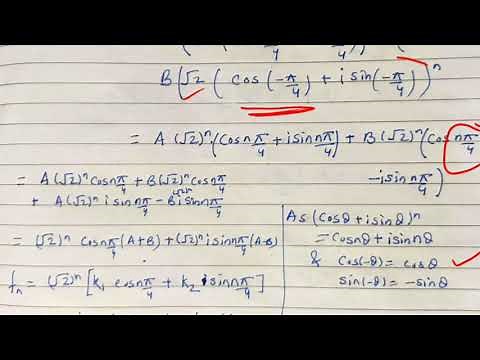 B(√2 (cos(-π/4) + i sin(-π/4))^n
= A(√2)^n (cos nπ/4 + i sin nπ/4) + B(√2)^n (cos nπ/4
- i sin nπ/4)
= A(√2)^n cos nπ/4 + B(√2)^n cos nπ/4
+ A(√2)^n i sin nπ/4 - B(√2)^n i sin nπ/4
= (√2)^n cos nπ/4 (A+B) + (√2)^n i sin nπ/4 (A-B)
f_n = (√2)^n [k₁ cos nπ/4 + k₂ sin nπ/4]
As (cosθ + i sinθ)^n
= cos nθ + i sin nθ
& cos(-θ) = cosθ
sin(-θ) = -sinθ